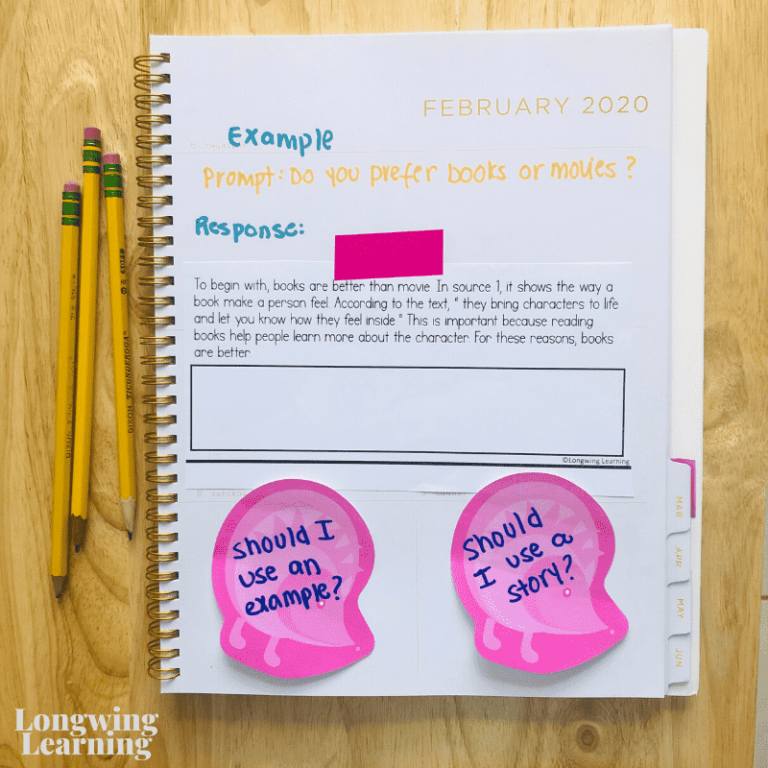 FEBRUARY 2020
Example
Prompt: Do you prefer books or movies?
Response:
To begin with, books are better than movie. In source 1, it shows the way a
book make a person feel. According to the text, " they bring characters to life
and let you know how they feel inside." This is important because reading
books help people learn more about the character. For these reasons, books
are better.
©Longwing Learning
Should I
use an
example?
Should
I use a
story?
MAR
APR
MAY
JUN
DIXON TICONDEROGA
Longwing
Learning